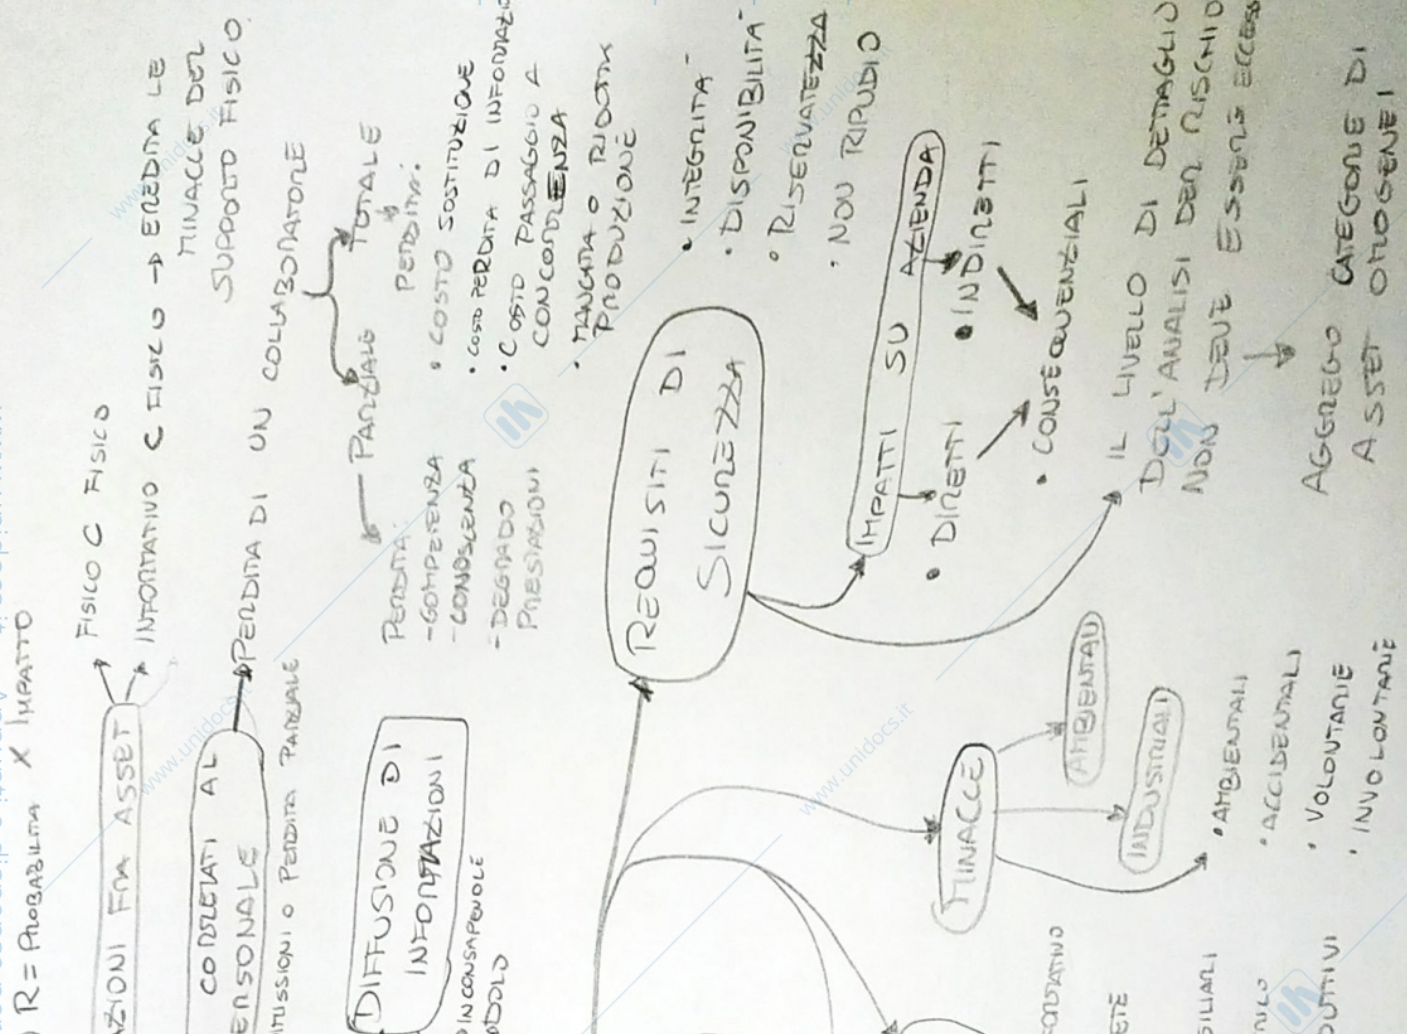 R = PROBABILITÀ X IMPATTO
AZIONI FRA ASSET
FISICO C FISICO
INFORMATIVO C FISICO → EREDITA LE
MINACCE DEL
SUPPORTO FISICO
CORRELATI AL
PERSONALE
PERDITA DI UN COLLABORATORE
MISSIONI O PERDITA PARZIALE
PARZIALE
PERDITA:
- COMPETENZA
- CONOSCENZA
- DEGRADO
PRESTAZIONI
TOTALE
PERDITA:
• COSTO SOSTITUZIONE
• COSTO PERDITA DI INFORMAZIO
• COSTO PASSAGGIO A
CONCORRENZA
• MANCATA O RIDOTTA
PRODUZIONE
DIFFUSIONE DI
INFORMAZIONI
INCONSAPEVOLE
DOLO
REQUISITI DI
SICUREZZA
• INTEGRITA'
• DISPONIBILITA'
• RISERVATEZZA
• NON RIPUDIO
IMPATTI SU AZIENDA
• DIRETTI
• INDIRETTI
• CONSEQUENZIALI
IL LIVELLO DI DETTAGLIO
DELL'ANALISI DEL RISCHIO
NON DEVE ESSERE ECCESS
AGGREGO CATEGORIE DI
ASSET OMOGENEI
MINACCE
AMBIENTALI
INDUSTRIALI
• AMBIENTALI
• ACCIDENTALI
• VOLONTARIE
• INVOLONTARIE
ETE
SILIARI
UTTIVI
www.unidocs.it
www.unidocs.it
www.unidocs.it
www.unidocs.it